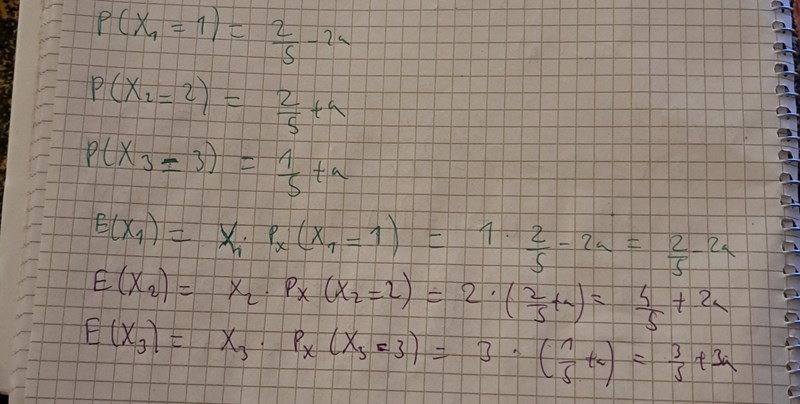 P(X₁ = 1) = 2/5 - 2a
P(X₂ = 2) = 2/5 + a
P(X₃ = 3) = 1/5 + a
E(X₁) = X₁ · Pₓ(X₁ = 1) = 1 · 2/5 - 2a = 2/5 - 2a
E(X₂) = X₂ · Pₓ(X₂ = 2) = 2 · (2/5 + a) = 4/5 + 2a
E(X₃) = X₃ · Pₓ(X₃ = 3) = 3 · (1/5 + a) = 3/5 + 3a